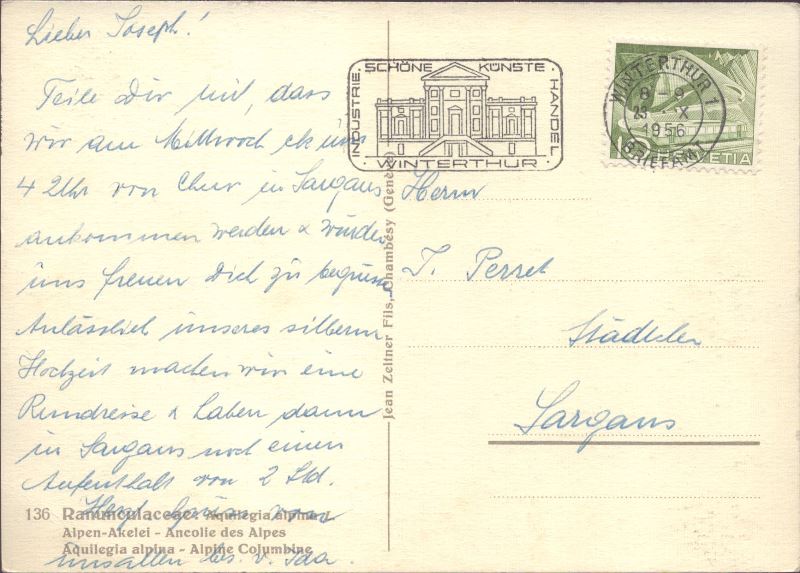 Lieber Joseph!
Teile Dir mit, dass
wir am Mittwoch ck uns
4 Uhr von Chur in Sargans
ankommen werden & würden
uns freuen Dich zu begrüssen
Anlässlich unseres silbern
Hochzeit machen wir eine
Rundreise & haben dann
in Sargans noch einen
Aufenthalt von 2 Std.
Herzl. Grüsse von
uns allen bes. v. Ida
136 Ranunculaceae: Aquilegia alpina L.
Alpen-Akelei - Ancolie des Alpes
Aquilegia alpina - Alpine Columbine
Jean Zeltner Fils, Chambésy (Genève)
INDUSTRIE · SCHÖNE KÜNSTE · HANDEL
· WINTERTHUR ·
WINTERTHUR 1
8-9
X
1956
BRIEFAMT
HELVETIA
Herrn
J. Perret
Städtchen
Sargans